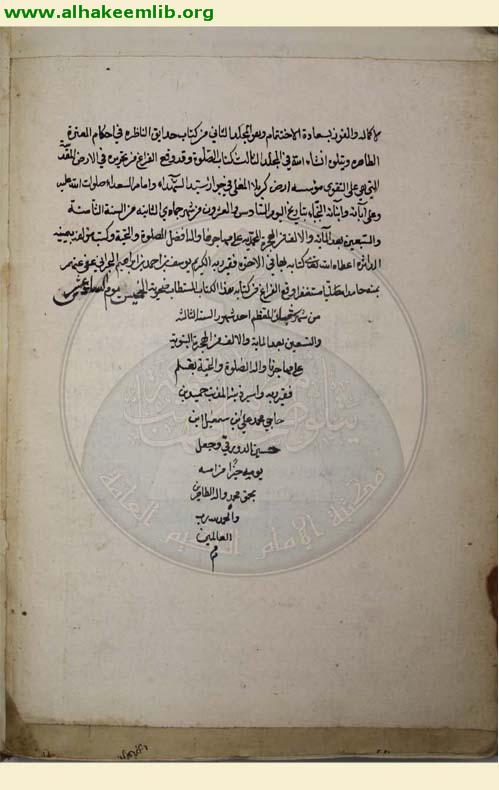 www.alhakeemlib.org
لاكماله والفوز بسعادة الاختتام وهو المجلد الثاني من كتاب حدايق الناظره في احكام العترة
الطاهره ويتلوه انشاء الله في المجلد الثالث كتاب الصلوة وقد وقع الفراغ من تحريره في الارض المقدّسة
التي هي على التقوى مؤسسه ارض كربلا المعلى في جوار سيد الشهداء وامام السعداء صلوات الله عليه
وعلى آبائه وابنائه النجباء بتاريخ اليوم السادس والعشرون من شهر جمادى الثانيه من السنة الثامنة
والسبعين بعد الماية والالف من الهجرة المحمديه على مهاجرها واله افضل الصلوة والتحية وكتب مؤلفه بيمينه
الداثرة اعطاه الله كتابه بها في الاخره فقير ربه الكريم يوسف بن احمد بن ابراهيم البحراني عفى عنهم
بمنه حامدا مصليا مستغفرا وقع الفراغ من كتابة هذا الكتاب المستطاب ضحوية الخميس يوم السابع عشر
من شهر المعظم احد شهور السنة الثالثه
والتسعين بعد الماية والالف من الهجرة النبوية
على مهاجرها واله الصلوة والتحية بقلم
فقير ربه واسير ذنبه
حاجي محمد علي ابن سمعيل ابن
حسين الدورقي وجعل
يوميه خيرا من امسه
بحق محمد واله الطاهرين
والحمد لله رب
العالمين
م
مكتبة الإمام الحكيم العامة